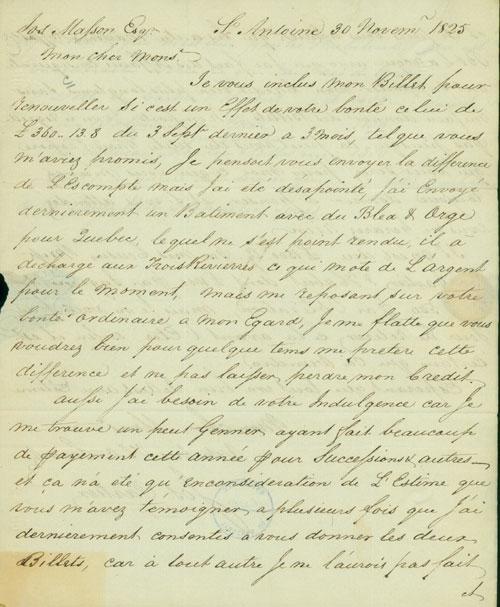 Jos Masson Esqr. St Antoine 30 Novemr 1825
Mon cher Monsr
Je vous inclus mon Billet pour
renouveller si c'est un Effet de votre bonté celui de
£360..13.8 du 3 Septr dernier a 3 mois, tel que vous
m'aviez promis, Je pensoit vous envoyer la difference
de L'Escompte mais J'ai eté desapointé, J'ai Envoyé
dernierement un Batiment avec du Bled & Orge
pour Quebec, lequel ne s'est point rendu, il a
dechargé aux TroisRivierres ci qui m'ote de L'argent
pour le moment, mais me reposant sur votre
bonté ordinaire a mon Egard, Je me flatte que vous
voudrez bien pour quelque tems me preter cette
difference et ne pas laisser perdre mon Credit.
aussi J'ai besoin de votre Indulgence car Je
me trouve un peut Genner ayant fait beaucoup
de payement cette année pour Successions & autres
et ça n'a été qu'enconsideration de L'Estime que
vous m'avez témoigner a plusieurs fois que J'ai
dernierement consentis a vous donner les deux
Billets, car a tout autre Je ne l'aurois pas fait
et